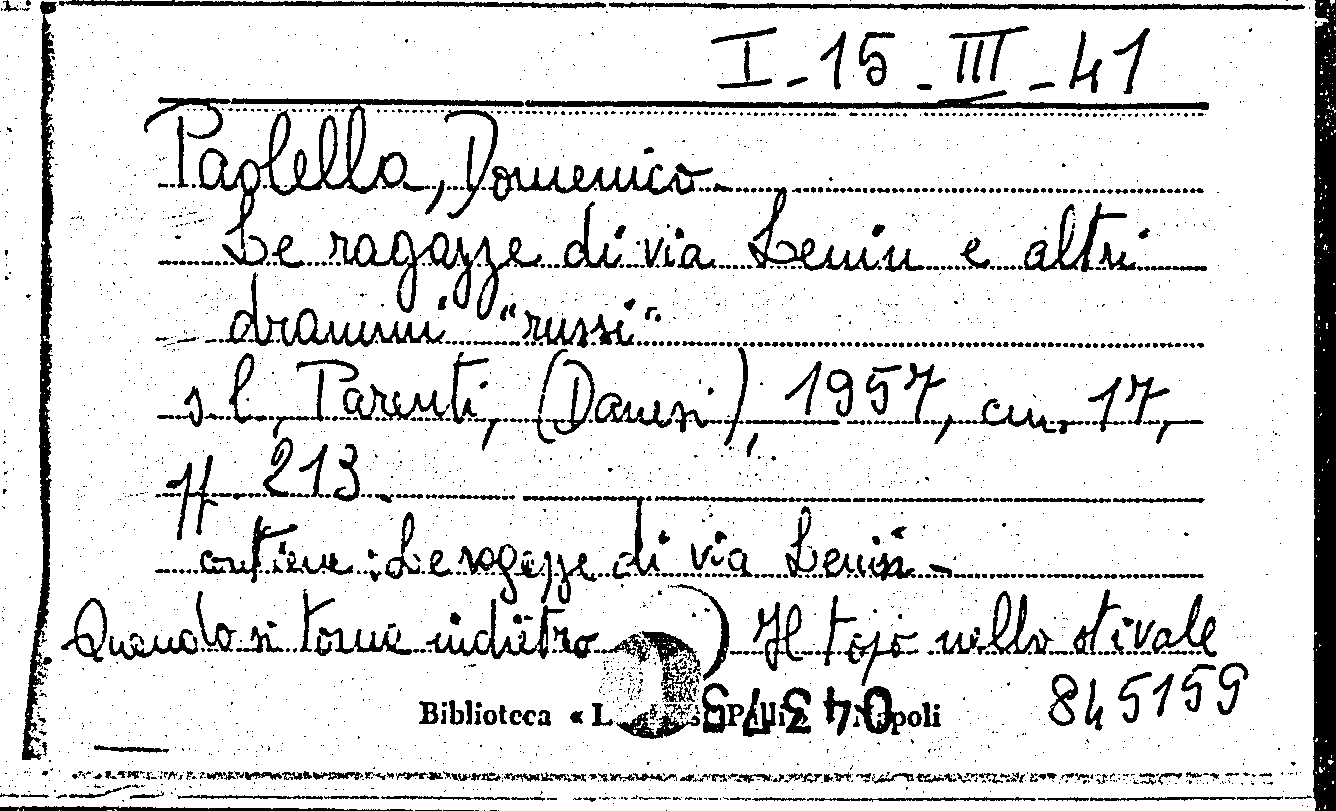 I-15-III-41
Paolella, Domenico-
Le ragazze di via Lenin e altri
drammi "russi"
s l, Parenti, (Danesi), 1957, cm. 17,
pp. 213.
contiene: Le ragazze di via Lenin-
Quando si torna indietro - Il topo nello stivale
845159
Biblioteca « L. Napoli
043785